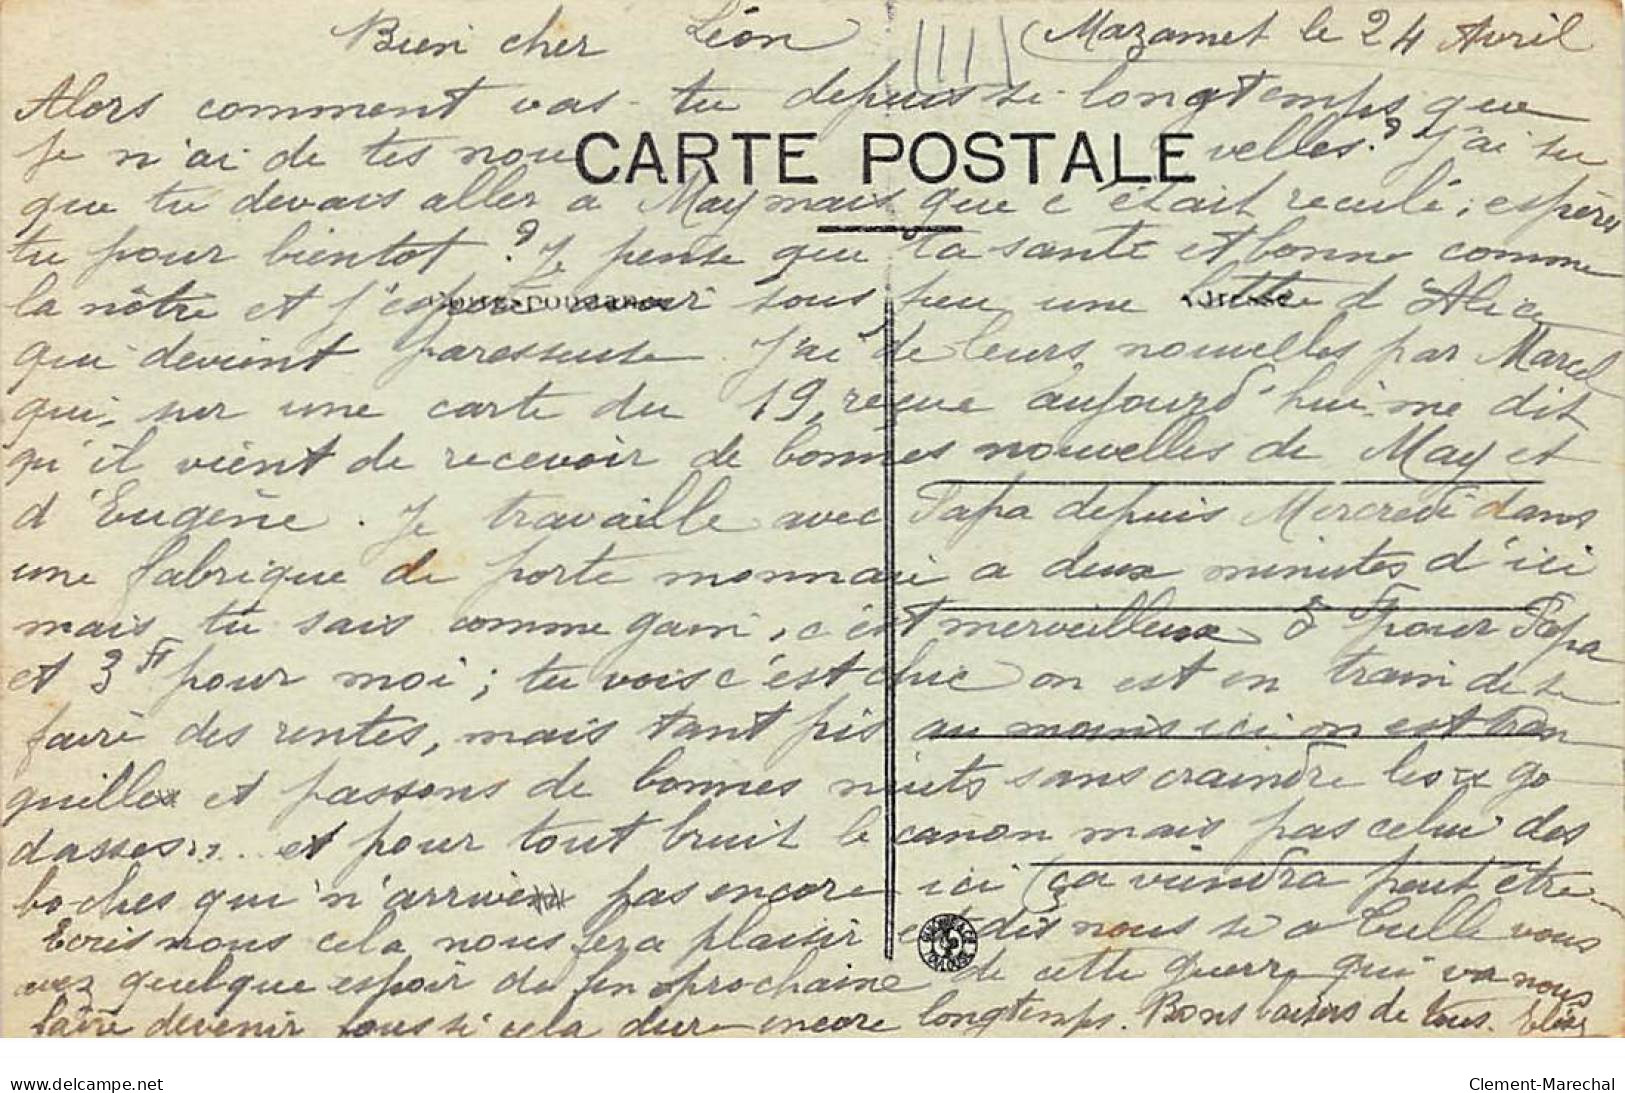 Bien cher Léon Mazamet le 24 Avril
Alors comment vas-tu depuis si longtemps que
je n'ai de tes nouvelles ? J'ai su
CARTE POSTALE
que tu devais aller a May mais que c'était reculé, espères
tu pour bientot ? Je pense que ta santé et bonne comme
la nôtre et j'espère avoir sous peu une lettre d'Alice
Correspondance
Adresse
qui devient paresseuse. J'ai de leurs nouvelles par Marcel
qui, sur une carte du 19, reçue aujourd'hui me dit
qu'il vient de recevoir de bonnes nouvelles de May et
d'Eugène. Je travaille avec Papa depuis Mercredi dans
une fabrique de porte monnaie a deux minutes d'ici
mais tu sais comme gain, c'est merveilleux 5 Fr pour Papa
et 3 Fr pour moi ; tu vois c'est chic on est en train de se
faire des rentes, mais tant pis au moins ici on est tran
quilles et passons de bonnes nuits sans craindre les go
dasses,,.. et pour tout bruit le canon mais pas celui des
boches qui n'arrive pas encore ici (ça viendra peut être
Ecris nous cela nous fera plaisir et dis nous si a Tulle vous
avez quelque espoir de fin prochaine de cette guerre qui va nous
faire devenir fous si cela dure encore longtemps. Bons baisers de tous. Elise
delcampe.net
Clement-Marechal